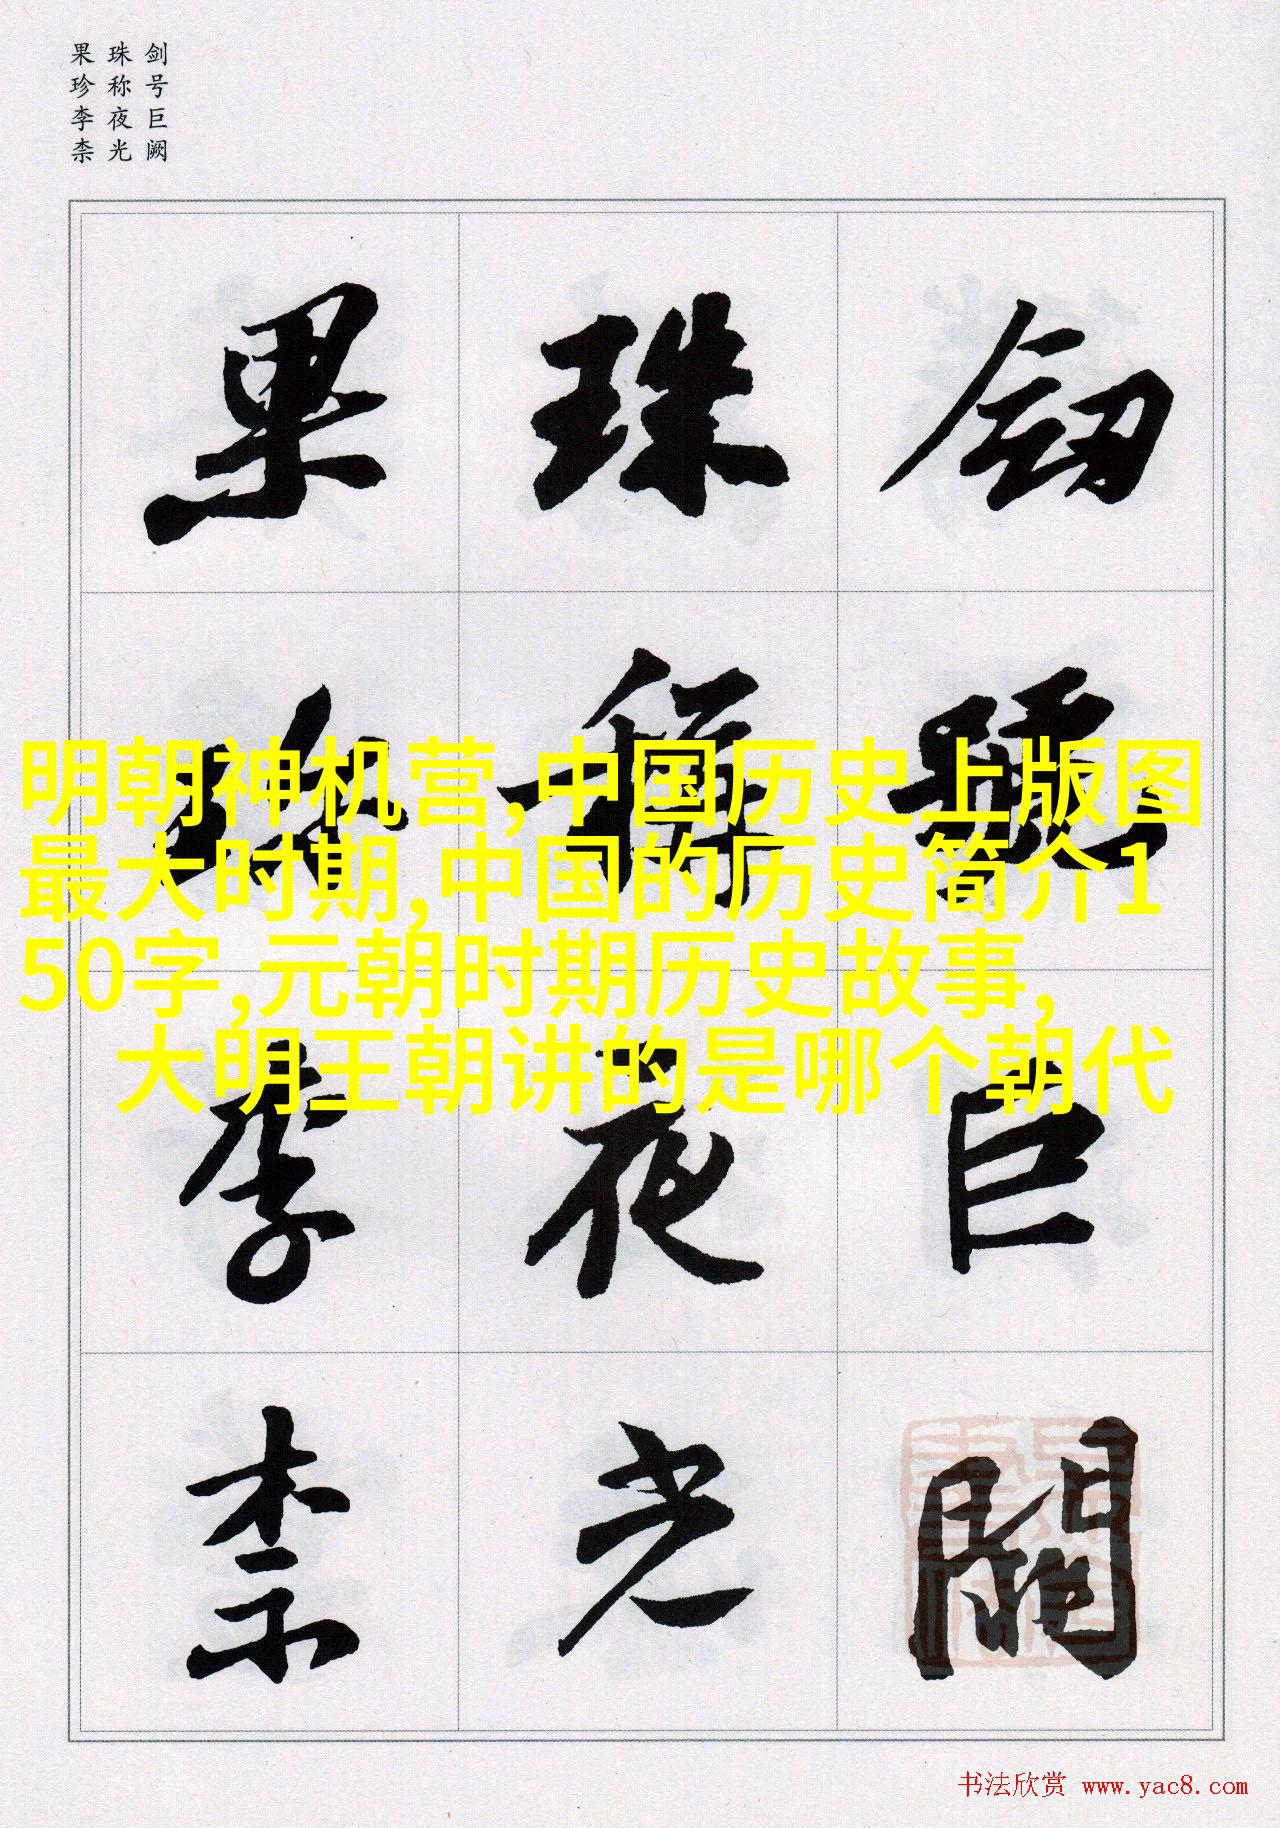 剑号巨阙
珠称夜光
果珍李柰
劒號巨闕
珠稱夜光
果珍李柰
明朝神机营,中国历史上版图
最大时期,中国的历史简介1
50字,元朝时期历史故事,
大明王朝讲的是哪个朝代
书法欣赏 www.yac8.com